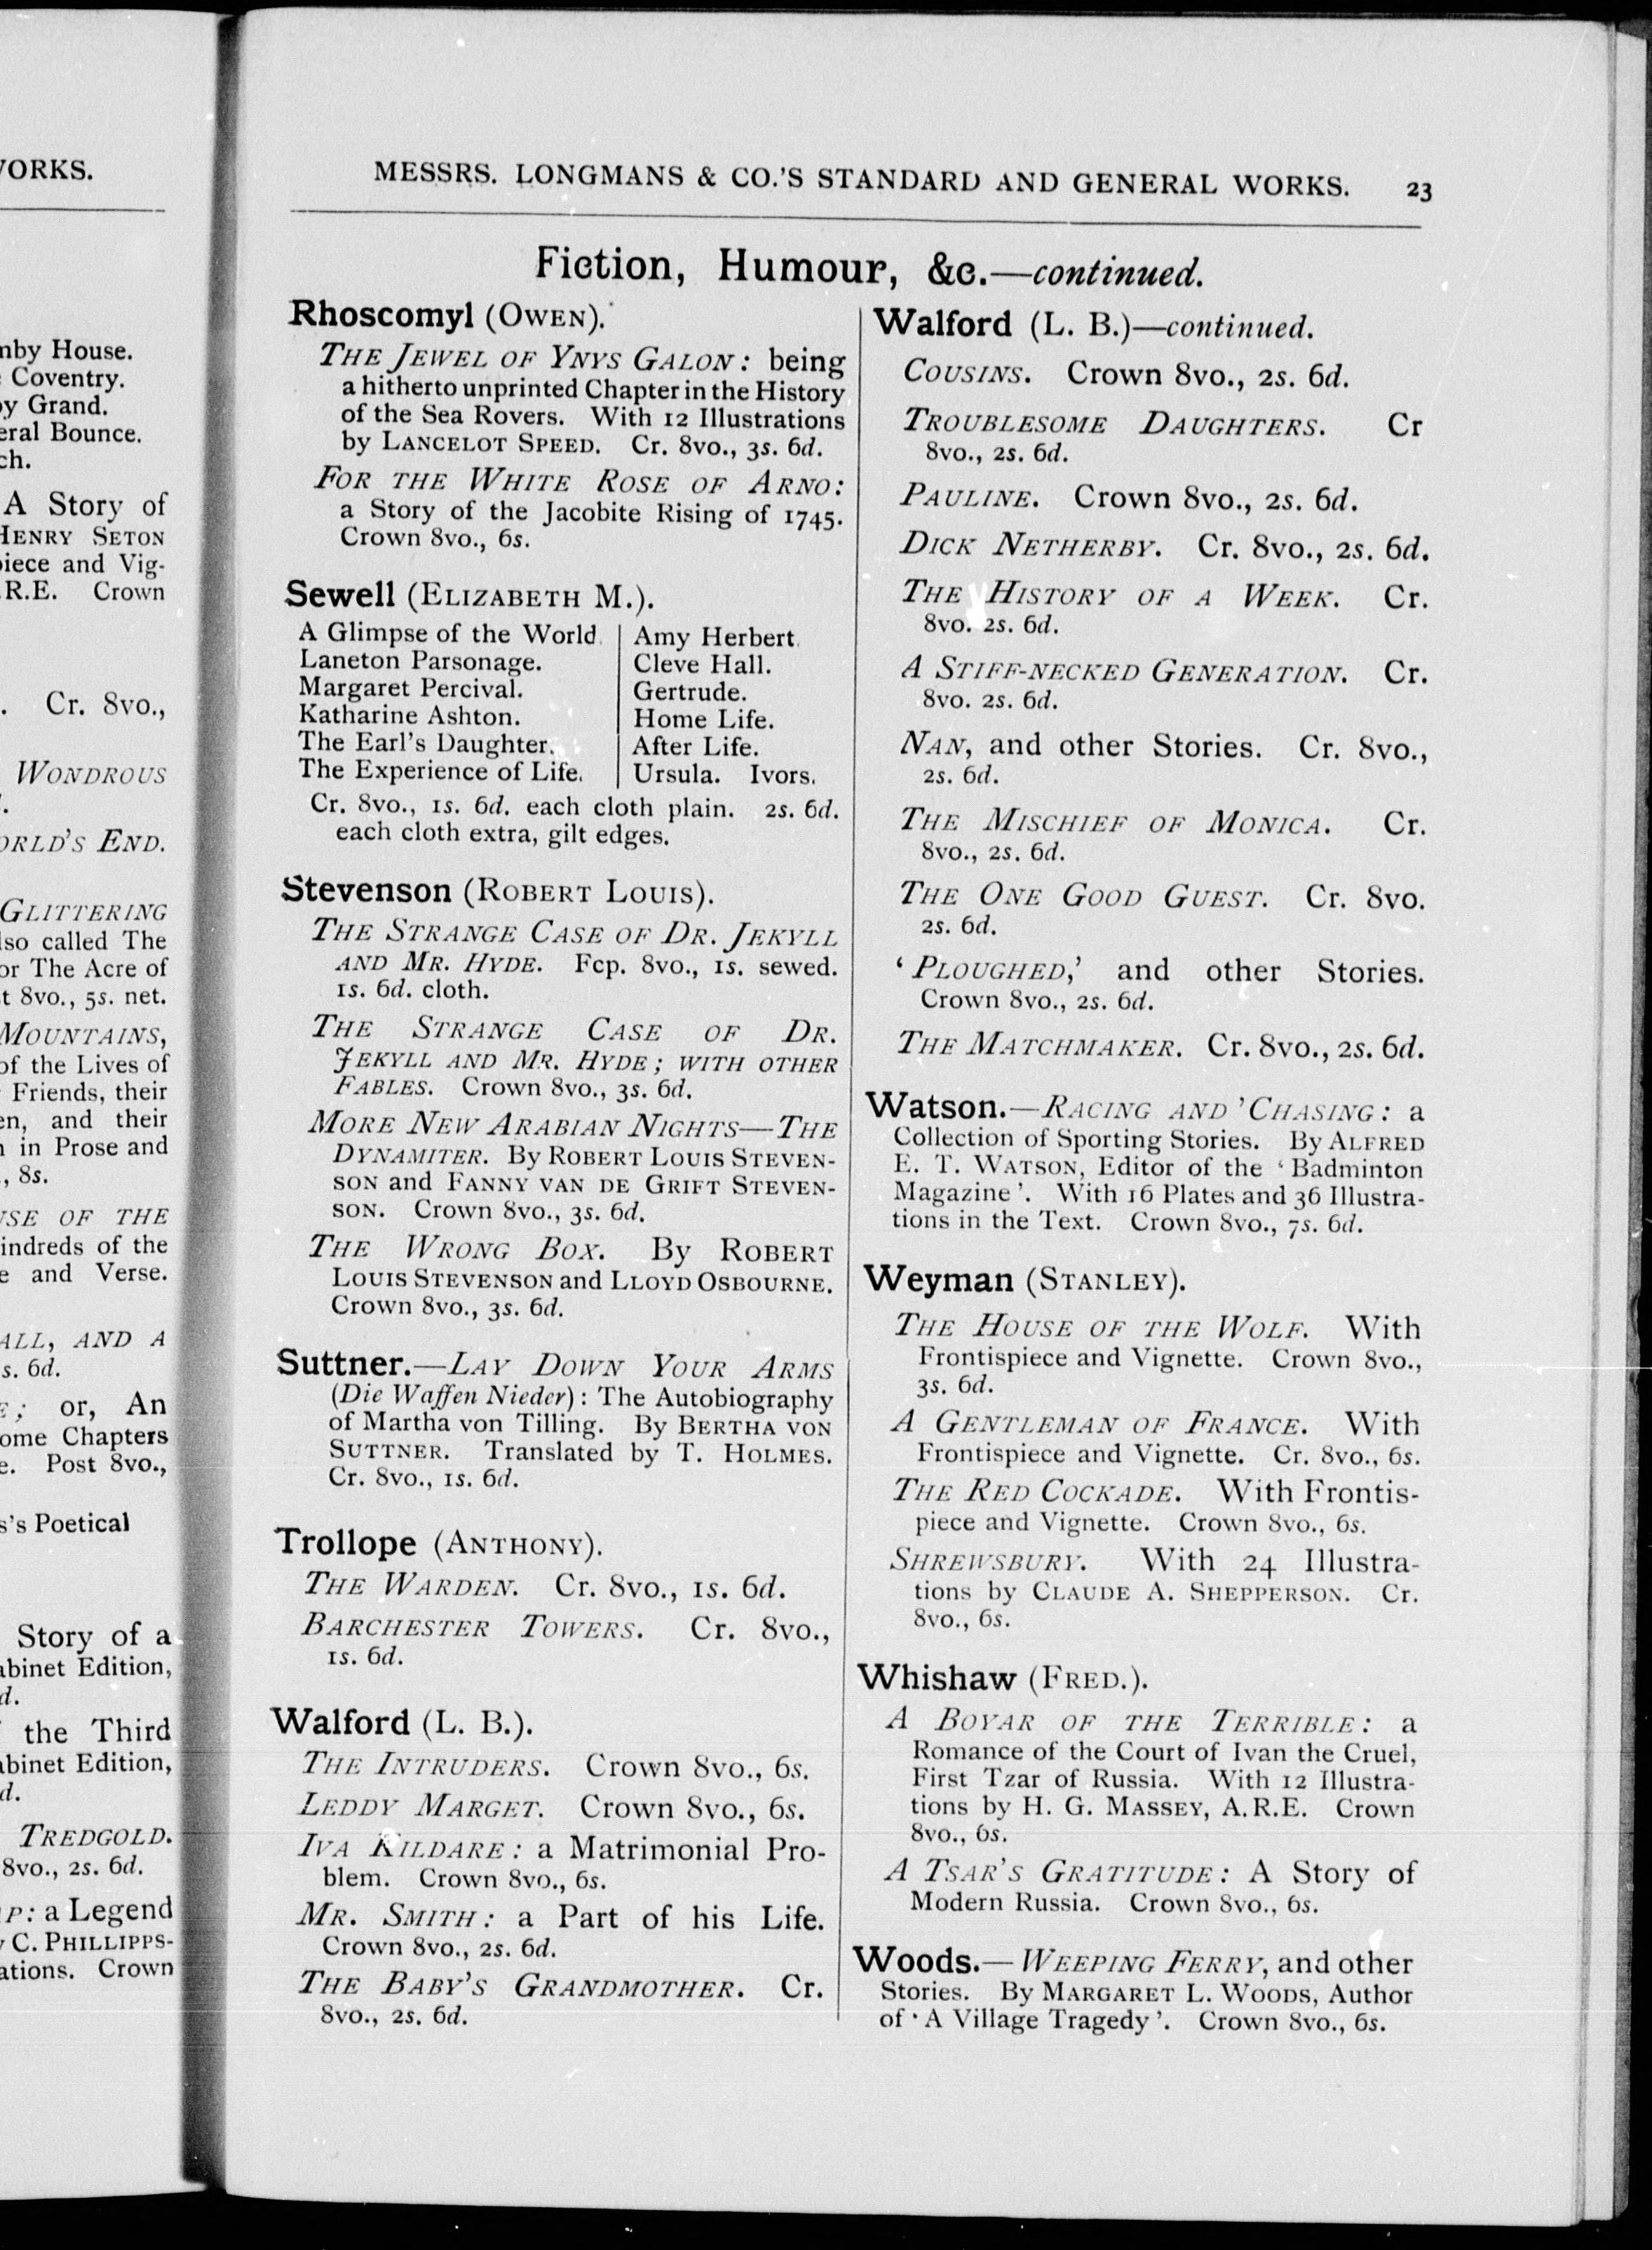 VORKS.
mby House.
Coventry.
by Grand.
eral Bounce.
ch.
A Story of
HENRY SETON
piece and Vig-
.R.E. Crown
. Cr. 8vo.,
WONDROUS
ORLD'S END.
GLITTERING
lso called The
or The Acre of
t 8vo., 5s. net.
MOUNTAINS,
of the Lives of
Friends, their
en, and their
n in Prose and
., 8s.
USE OF THE
indreds of the
e and Verse.
ALL, AND A
s. 6d.
E; or, An
ome Chapters
e. Post 8vo.,
s's Poetical
Story of a
abinet Edition,
d.
the Third
abinet Edition,
d.
TREDGOLD.
8vo., 2s. 6d.
P: a Legend
y C. PHILLIPPS-
ations. Crown
MESSRS. LONGMANS & CO.'S STANDARD AND GENERAL WORKS. 23
Fiction, Humour, &c.—continued.
Rhoscomyl (OWEN).
THE JEWEL OF YNYS GALON: being
a hitherto unprinted Chapter in the History
of the Sea Rovers. With 12 Illustrations
by LANCELOT SPEED. Cr. 8vo., 3s. 6d.
FOR THE WHITE ROSE OF ARNO:
a Story of the Jacobite Rising of 1745.
Crown 8vo., 6s.
Sewell (ELIZABETH M.).
A Glimpse of the World.
Laneton Parsonage.
Margaret Percival.
Katharine Ashton.
The Earl's Daughter.
The Experience of Life.
Amy Herbert.
Cleve Hall.
Gertrude.
Home Life.
After Life.
Ursula. Ivors.
Cr. 8vo., 1s. 6d. each cloth plain. 2s. 6d.
each cloth extra, gilt edges.
Stevenson (ROBERT LOUIS).
THE STRANGE CASE OF DR. JEKYLL
AND MR. HYDE. Fcp. 8vo., 1s. sewed.
1s. 6d. cloth.
THE STRANGE CASE OF DR.
JEKYLL AND MR. HYDE; WITH OTHER
FABLES. Crown 8vo., 3s. 6d.
MORE NEW ARABIAN NIGHTS—THE
DYNAMITER. By ROBERT LOUIS STEVEN-
SON and FANNY VAN DE GRIFT STEVEN-
SON. Crown 8vo., 3s. 6d.
THE WRONG BOX. By ROBERT
LOUIS STEVENSON and LLOYD OSBOURNE.
Crown 8vo., 3s. 6d.
Suttner.—LAY DOWN YOUR ARMS
(Die Waffen Nieder): The Autobiography
of Martha von Tilling. By BERTHA VON
SUTTNER. Translated by T. HOLMES.
Cr. 8vo., 1s. 6d.
Trollope (ANTHONY).
THE WARDEN. Cr. 8vo., 1s. 6d.
BARCHESTER TOWERS. Cr. 8vo.,
1s. 6d.
Walford (L. B.).
THE INTRUDERS. Crown 8vo., 6s.
LEDDY MARGET. Crown 8vo., 6s.
IVA KILDARE: a Matrimonial Pro-
blem. Crown 8vo., 6s.
MR. SMITH: a Part of his Life.
Crown 8vo., 2s. 6d.
THE BABY'S GRANDMOTHER. Cr.
8vo., 2s. 6d.
Walford (L. B.)—continued.
COUSINS. Crown 8vo., 2s. 6d.
TROUBLESOME DAUGHTERS. Cr
8vo., 2s. 6d.
PAULINE. Crown 8vo., 2s. 6d.
DICK NETHERBY. Cr. 8vo., 2s. 6d.
THE HISTORY OF A WEEK. Cr.
8vo. 2s. 6d.
A STIFF-NECKED GENERATION. Cr.
8vo. 2s. 6d.
NAN, and other Stories. Cr. 8vo.,
2s. 6d.
THE MISCHIEF OF MONICA. Cr.
8vo., 2s. 6d.
THE ONE GOOD GUEST. Cr. 8vo.
2s. 6d.
'PLOUGHED,' and other Stories.
Crown 8vo., 2s. 6d.
THE MATCHMAKER. Cr. 8vo., 2s. 6d.
Watson.—RACING AND 'CHASING: a
Collection of Sporting Stories. By ALFRED
E. T. WATSON, Editor of the 'Badminton
Magazine'. With 16 Plates and 36 Illustra-
tions in the Text. Crown 8vo., 7s. 6d.
Weyman (STANLEY).
THE HOUSE OF THE WOLF. With
Frontispiece and Vignette. Crown 8vo.,
3s. 6d.
A GENTLEMAN OF FRANCE. With
Frontispiece and Vignette. Cr. 8vo., 6s.
THE RED COCKADE. With Frontis-
piece and Vignette. Crown 8vo., 6s.
SHREWSBURY. With 24 Illustra-
tions by CLAUDE A. SHEPPERSON. Cr.
8vo., 6s.
Whishaw (FRED.).
A BOYAR OF THE TERRIBLE: a
Romance of the Court of Ivan the Cruel,
First Tzar of Russia. With 12 Illustra-
tions by H. G. MASSEY, A.R.E. Crown
8vo., 6s.
A TSAR'S GRATITUDE: A Story of
Modern Russia. Crown 8vo., 6s.
Woods.—WEEPING FERRY, and other
Stories. By MARGARET L. WOODS, Author
of 'A Village Tragedy'. Crown 8vo., 6s.